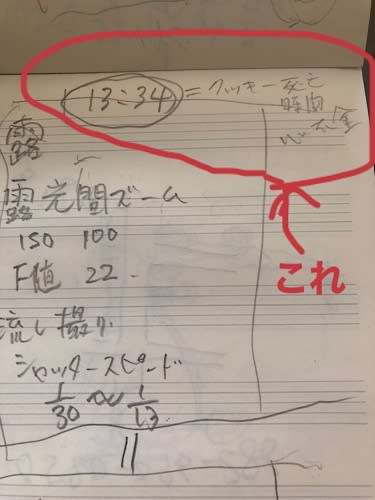 13:34 = クッキー死亡
時間
露
露光間ズーム
ISO 100
F値 22
流し撮り
シャッタースピード
1/30 〜 1/13
これ